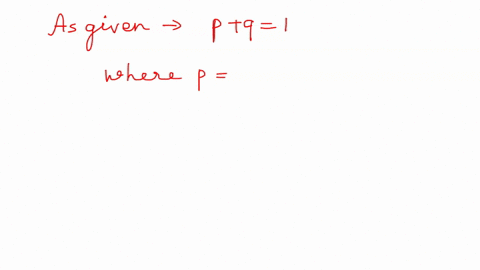 As given → p+q=1
where p =